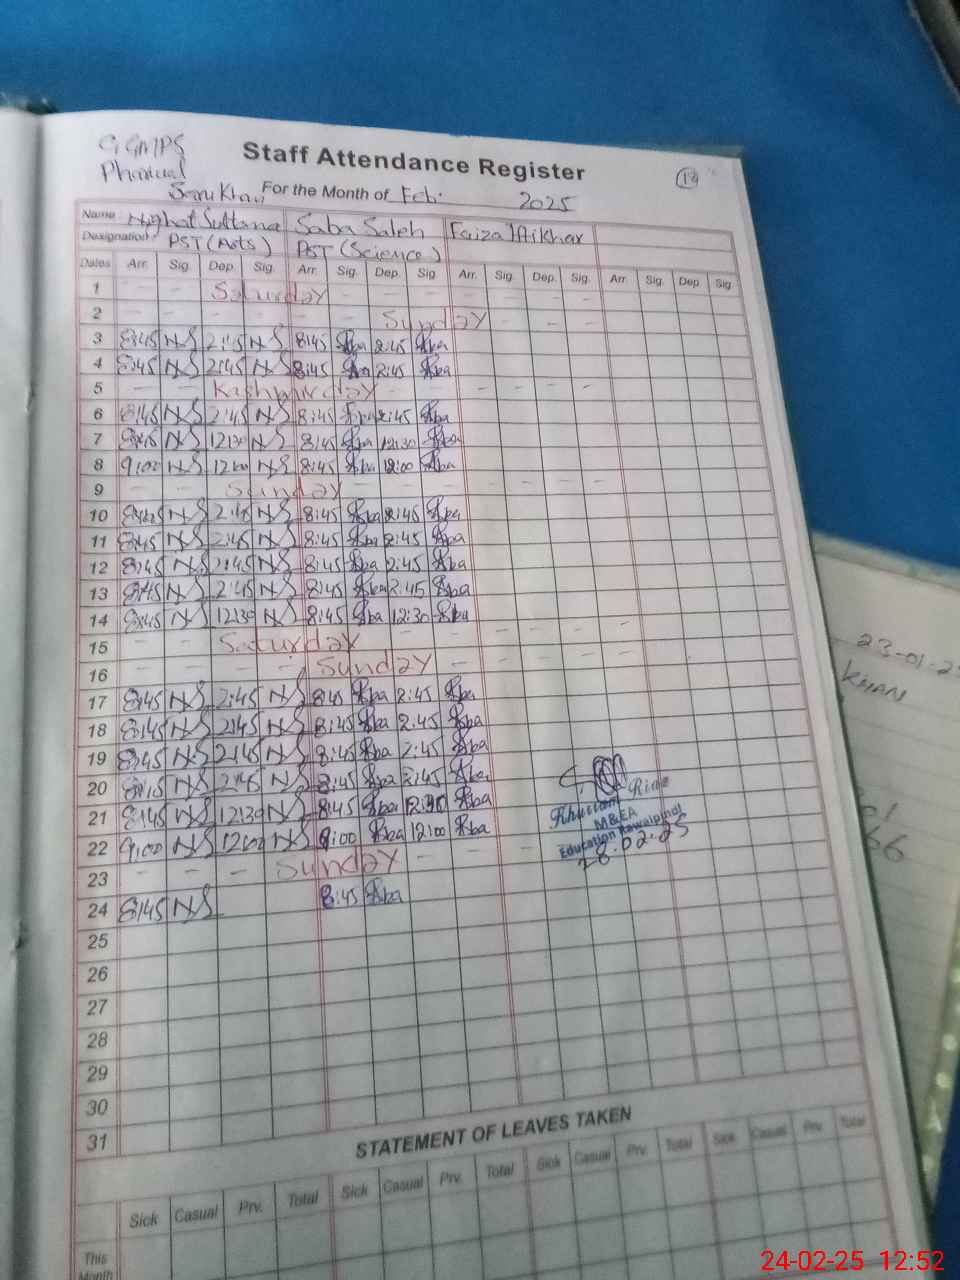 GGMPS
Staff Attendance Register
19
Saru Khan
For the Month of Feb. 2025
Name Nighat Sultana Saba Saleh Faiza Iftikhar
Designation: PST (Arts) PST (Science)
Dates Arr. Sig. Dep. Sig. Arr. Sig. Dep. Sig. Arr. Sig. Dep. Sig. Arr. Sig. Dep Sig.
1 Saturday
2 Sunday
3 8:45 NS 2:45 NS 8:45 Saba 2:45 Saba
4 8:45 NS 2:45 NS 8:45 Saba 2:45 Saba
5 Kashmir day
6 8:45 NS 2:45 NS 8:45 Saba 2:45 Saba
7 8:45 NS 12:30 NS 8:45 Saba 12:30 Saba
8 9:00 NS 12:00 NS 8:45 Saba 12:00 Saba
9 Sunday
10 8:45 NS 2:45 NS 8:45 Saba 2:45 Saba
11 8:45 NS 2:45 NS 8:45 Saba 2:45 Saba
12 8:45 NS 2:45 NS 8:45 Saba 2:45 Saba
13 8:45 NS 2:45 NS 8:45 Saba 2:45 Saba
14 8:45 NS 12:30 NS 8:45 Saba 12:30 Saba
15 Saturday
16 Sunday
17 8:45 NS 2:45 NS 8:45 Saba 2:45 Saba
18 8:45 NS 2:45 NS 8:45 Saba 2:45 Saba
19 8:45 NS 2:45 NS 8:45 Saba 2:45 Saba
20 8:45 NS 2:45 NS 8:45 Saba 2:45 Saba
21 8:45 NS 12:30 NS 8:45 Saba 12:30 Saba
22 9:00 NS 12:00 NS 9:00 Saba 12:00 Saba
23 Sunday
24 8:45 NS 8:45 Saba
25
26
27
28
29
30
31
Khurram Riaz
M&EA
Education Rawalpindi
02-25
STATEMENT OF LEAVES TAKEN
Sick Casual Prv. Total Sick Casual Prv. Total Sick Casual Prv. Total Sick Casual Prv. Total
This
Month
23-01-25
KHAN
66
24-02-25 12:52